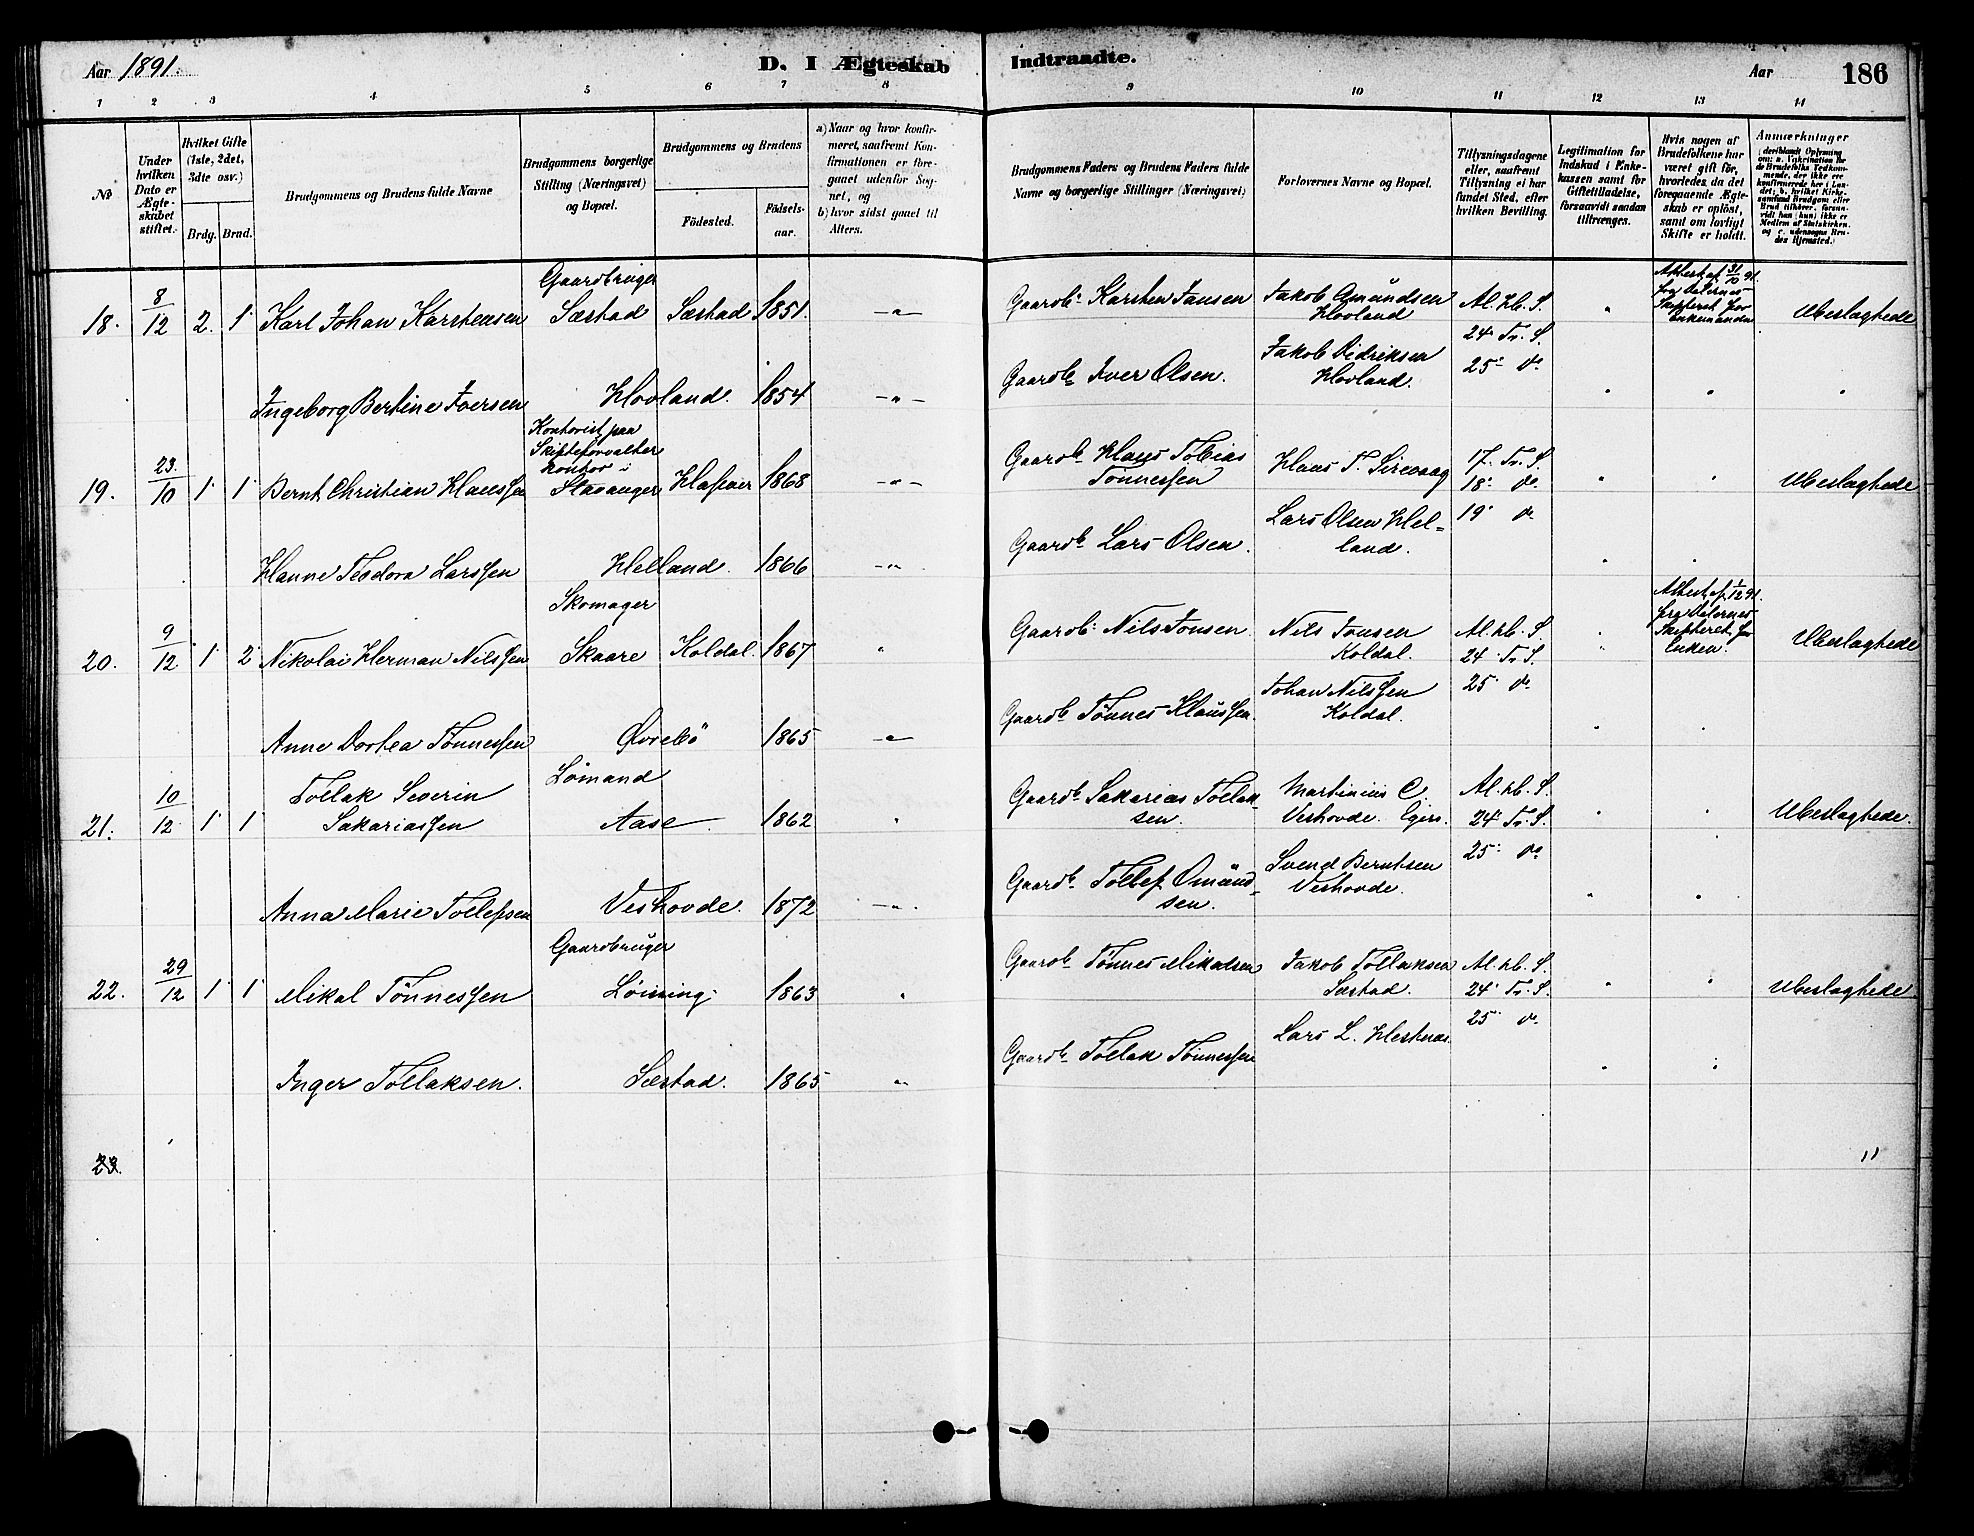 Aar 1891.
D. I Ægteskab
Indtraadte.
Aar
186
1 2 3 4 5 6 7 8 9 10 11 12 13 14
No
Under hvilken Dato er Ægteskabet stiftet.
Hvilket Gifte (1ste, 2det, 3dte osv.)
Brdg. Brud.
Brudgommens og Brudens fulde Navne
Brudgommens borgerlige Stilling (Næringsvei) og Bopæl.
Brudgommens og Brudens
Födested.
Födselsaar.
a) Naar og hvor konfirmeret, saafremt Konfirmationen er foregaaet udenfor Sognet, og
b) hvor sidst gaaet til Alters.
Brudgommens Faders og Brudens Faders fulde Navne og borgerlige Stillinger (Næringsvei)
Forlovernes Navne og Bopæl.
Tillysningsdagene eller, saafremt Tillysning ei har fundet Sted, efter hvilken Bevilling.
Legitimation for Indskud i Enkekassen samt for Giftetilladelse, forsaavidt saadan tiltrænges.
Hvis nogen af Brudefolkene har været gift för, hvorledes da det foregaaende Ægteskab er oplöst, samt om lovligt Skifte er holdt.
Anmærkninger
18. 8/12 2. 1 Karl Johan Karstensen
Gaardbruger
Sæstad Sæstad 1851 -"-
Gaardb. Karsten Jansen
Jakob Amundsen
Hovland
Al. hb. S.
24 Tr. S.
25 do
Attest af 31/10 91.
Ubeslægtede
Ingeborg Bertine Iversen Hovland. 1854 -"-
Gaardb. Iver Olsen.
Jakob Didriksen
Hovland.
19. 23/10 1 1 Bernt Christian Klaussen
Kontorist paa
Skifteforvalter
kontor i
Stavanger 1868 -"-
Gaardb. Klaus Tobias
Tønnessen
Klaus T. Sirevaag
17. Tr. S.
18. do
19 do
Ubeslægtede
Hanne Teodora Larssen Helland. 1866 -"-
Gaardb. Lars Olsen.
Lars Olsen Hel=
land.
20. 9/12 1 2 Nikolai Herman Nilssen
Skomager
Skaare Koldal. 1867 "
Gaardb. Nils Jonsen.
Nils Jonsen
Koldal.
Al. hb. S.
24 Tr. S.
25 do
Enken.
Ubeslægtede
Anne Dortea Tønnessen Øvrebø 1865 -"-
Gaardb. Tønnes Klaussen.
Johan Nilssen
Koldal.
21. 10/12 1 1 Tollak Severin
Sakariassen
Lømand
Aase 1862 "
Gaardb. Sakarias Tollak=
sen.
Martinius C.
Veshovde. Egers.
Al. hb. S.
24 Tr. S.
25 do
Ubeslægtede.
Anna Marie Tollefsen Veshovde. 1872 -"-
Gaardb. Tollef Omund=
sen.
Svend Berntsen
Veshovde.
22. 29/12 1 1 Mikal Tønnessen
Gaardbruger
Løining 1863 "
Gaardb. Tønnes Mikalsen
Jakob Tollaksen
Sæstad.
Al. hb. S.
24 Tr. S.
25 do
Ubeslægtede
Inger Tollaksen. Sæstad. 1865 "
Gaardb. Tollak Tønnessen
Lars L. Hestnæs.
23.